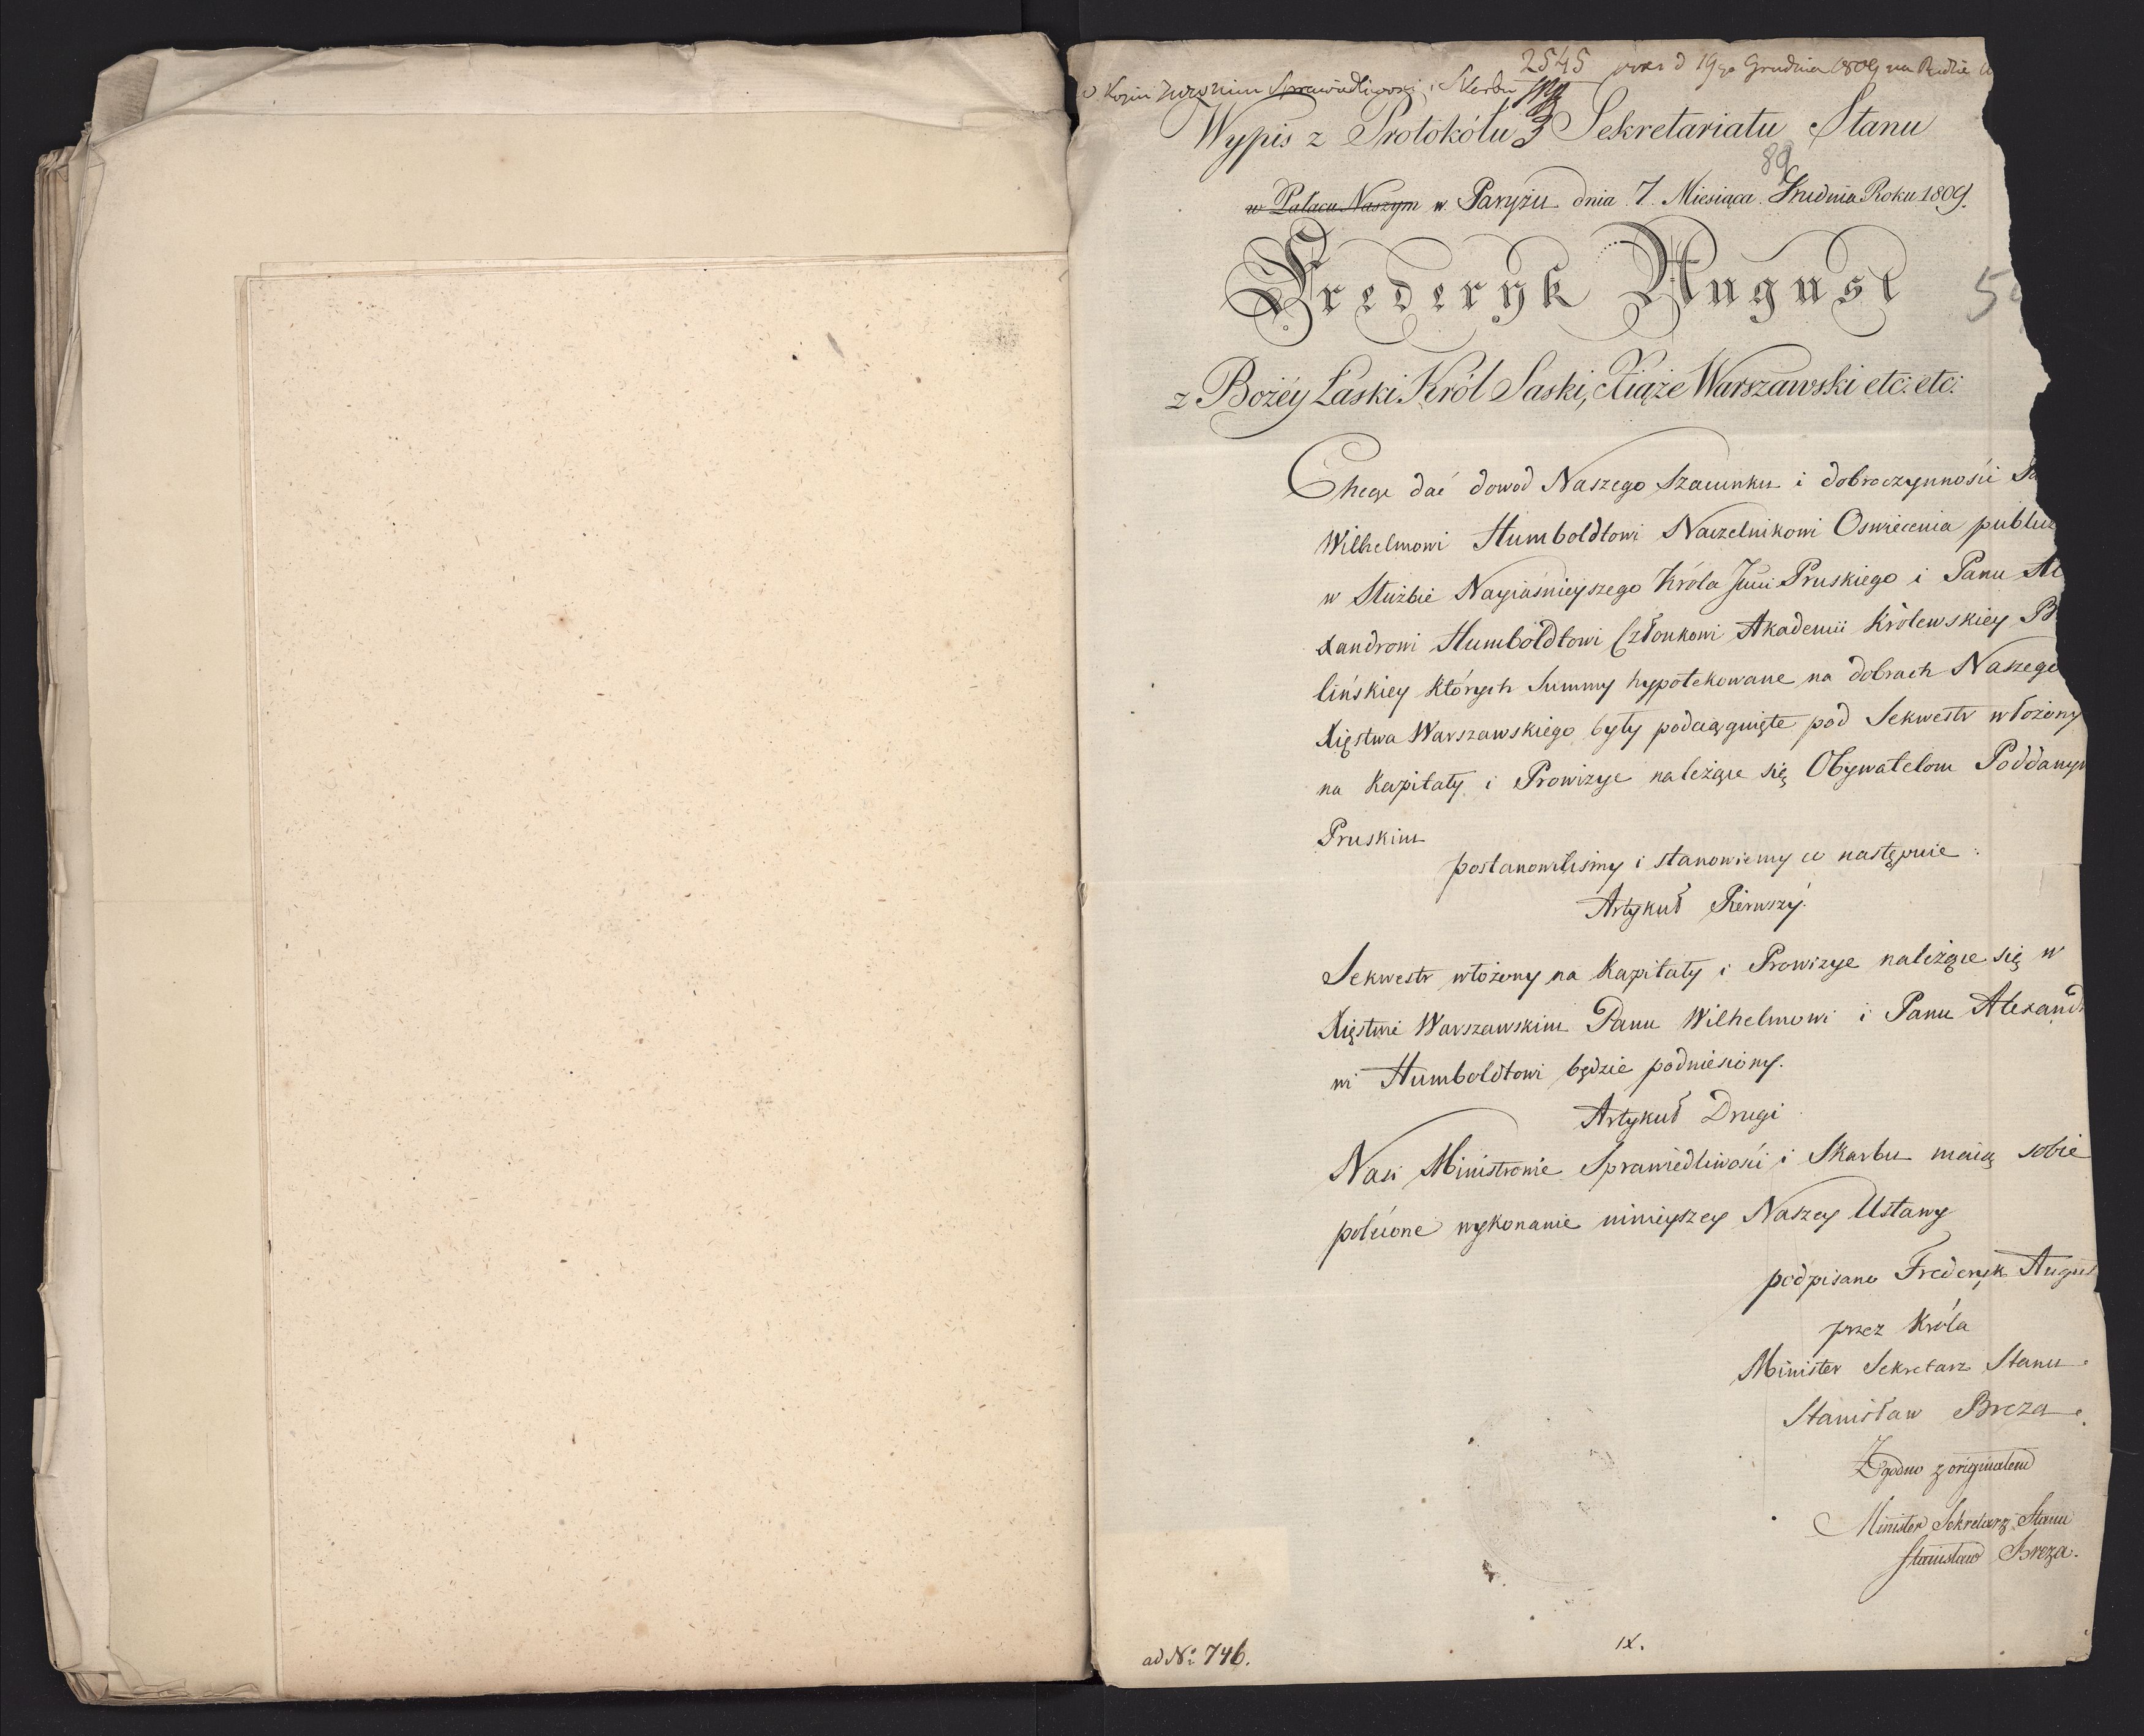 2545 d 19go Grudnia 1809 na Radzie
Sprawiedliwości i Skarbu
Wypis z Protokółu Sekretariatu Stanu
3
89
w Palacu Naszym w Paryżu dnia 7. Miesiąca Grudnia Roku 1809.
Frederyk August
5
z Bożéy Łaski Król Saski, Xiąże Warszawski etc: etc:
Chcąc dać dowod Naszego Szacunku i dobroczynności
Wilhelmowi Humboldtowi Naczelnikowi Oswiecenia public
w Służbie Nayiaśnieyszego Króla Jmci Pruskiego i Panu Al
xandrowi Humboldtowi Członkowi Akademii Królewskiey B
lińskiey których Summy hypotekowane na dobrach Naszego
Xięstwa Warszawskiego były podciągnięte pod Sekwestr włożony
na Kapitały i Prowizye należące się Obywatelom Poddanym
Pruskim
postanowiliśmy i stanowiemy co następuie:
Artykuł Pierwszy.
Sekwestr włożony na Kapitały i Prowizye należące się w
Xięstwie Warszawskim Panu Wilhelmowi i Panu Alexand
wi Humboldtowi będzie podniesiony.
Artykuł Drugi
Nasi Ministrowie Sprawiedliwości i Skarbu maią sobie
polecone wykonanie ninieyszey Naszey Ustawy
podpisano Frederyk August
przez Króla
Minister Sekretarz Stanu.
Stanisław Breza.
Zgodno z originałem
Minister Sekretarz Stanu
Stanisław Breza.
ad No: 746.
IX.